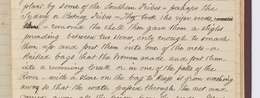 plan by some of the Southern Tribes - perhaps the
Sydney & adjoining Tribes - They took the ripe seeds
removed the shells then gave them a slight
pounding between two stones, only enough to smash
them up and put them into one of the nets - or
knitted bags that the women made and put them
into a running creek or in one of the falls of the
River - with a stone on the bag to keep it from washing
away so that the water passed through the net and